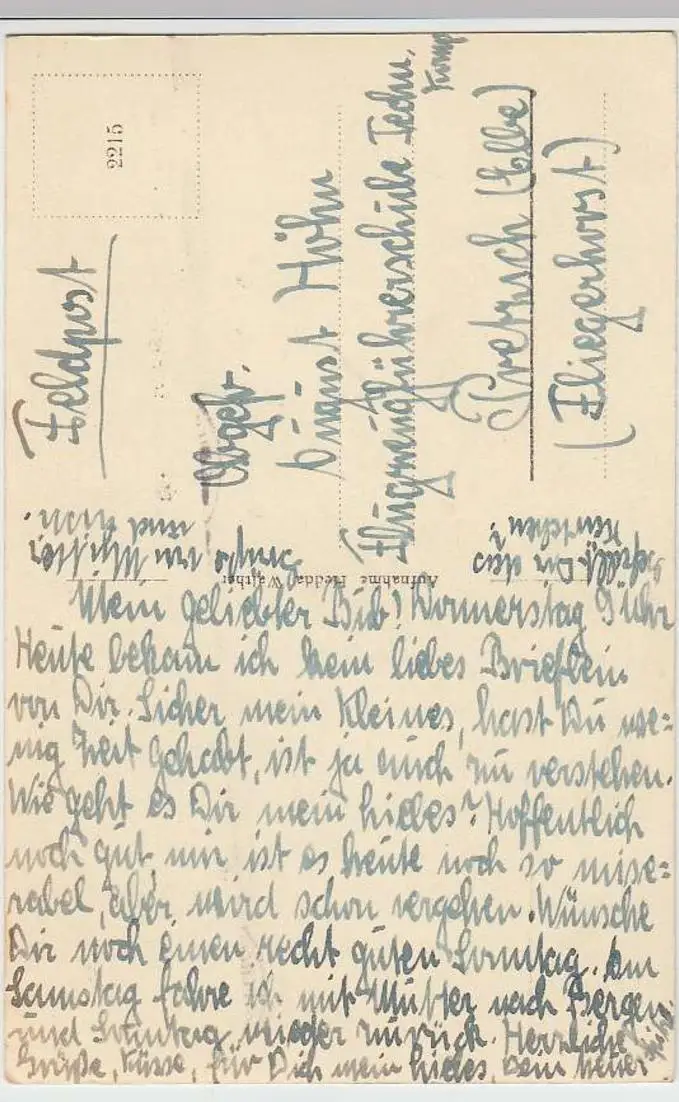 2215
Feldpost
Obgefr.
August Höhn
Flugzeugführerschule Techn. Komp
Pretzsch (Elbe)
(Fliegerhorst)
Aufnahme Hedda Walther
Mein geliebter Bub! Donnerstag 9 Uhr
Heute bekam ich kein liebes Brieflein
von Dir. Sicher mein Kleines, hast Du we=
nig Zeit gehabt, ist ja auch zu verstehen.
Wie geht es Dir mein Liebes? Hoffentlich
noch gut, mir ist es heute noch so mise=
rabel, aber wird schon vergehen. Wünsche
Dir noch einen recht guten Sonntag. Am
Samstag fahre ich mit Mutter nach Bergen
und Sonntag wieder zurück. Herzliche
Grüße, Küsse, für Dich mein Liebes, Dein
Gefällt Dir das
Kärtchen?